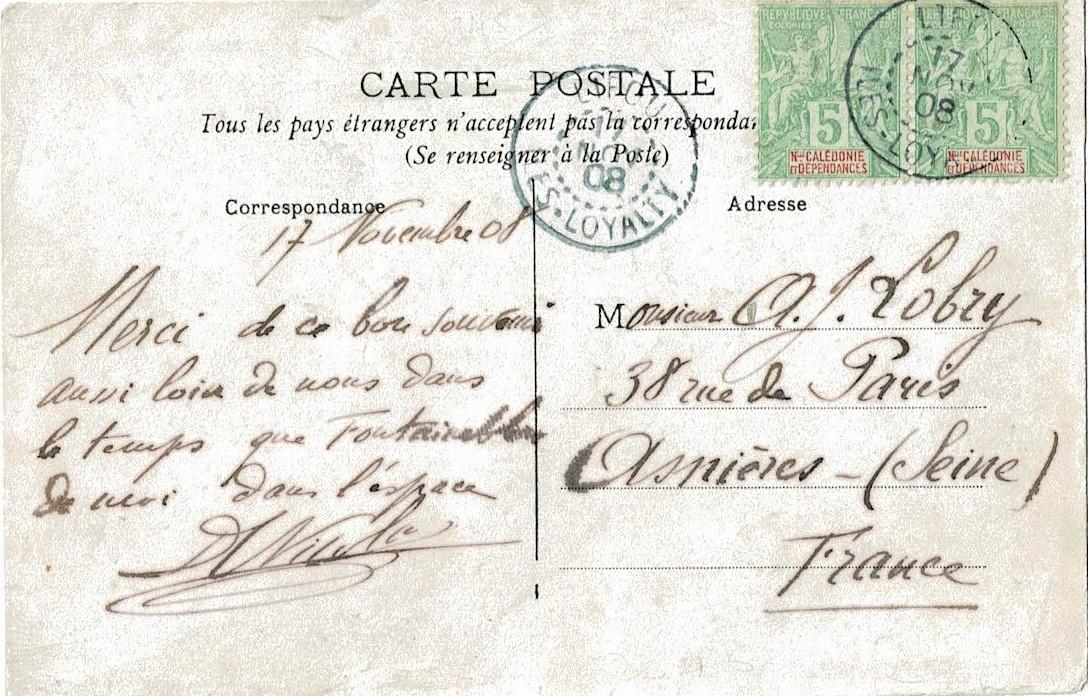 CARTE POSTALE
Tous les pays étrangers n'acceptent pas la correspondan
(Se renseigner à la Poste)
RÉPUBLIQUE FRANÇAISE
COLONIES
5
Nlle CALÉDONIE
ET DÉPENDANCES
RÉPUBLIQUE FRANÇAISE
5
Nlle CALÉDONIE
ET DÉPENDANCES
LIFOU
17
NOV
08
ILES-LOYALTY
LIFOU
17
NOV
08
ILES-LOY
Correspondance
17 Novembre 08
Merci de ce bon souvenir
aussi loin de nous dans
le temps que Fontainebleau
de moi dans l'espace
Adresse
Monsieur A. J. Lobry
38 rue de Paris
Asnières - (Seine)
France